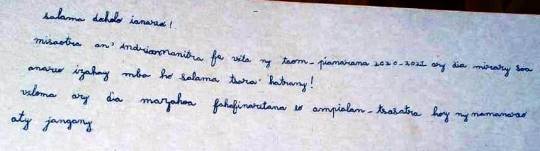 salama daholo ianareo!
misaotra an' Andriamanitra fa vita ny taom-pianarana 2020-2021 ary dia mirary soa
anareo izahay mba ho salama tsara hatrany!
veloma ary dia mazotoa fahafinaretana eo ampialan-tsasatra hoy ny namanareo
aty jangany